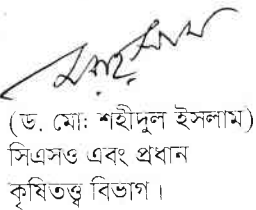 (ড. মোঃ শহীদুল ইসলাম)
সিএসও এবং প্রধান
কৃষিতত্ত্ব বিভাগ।